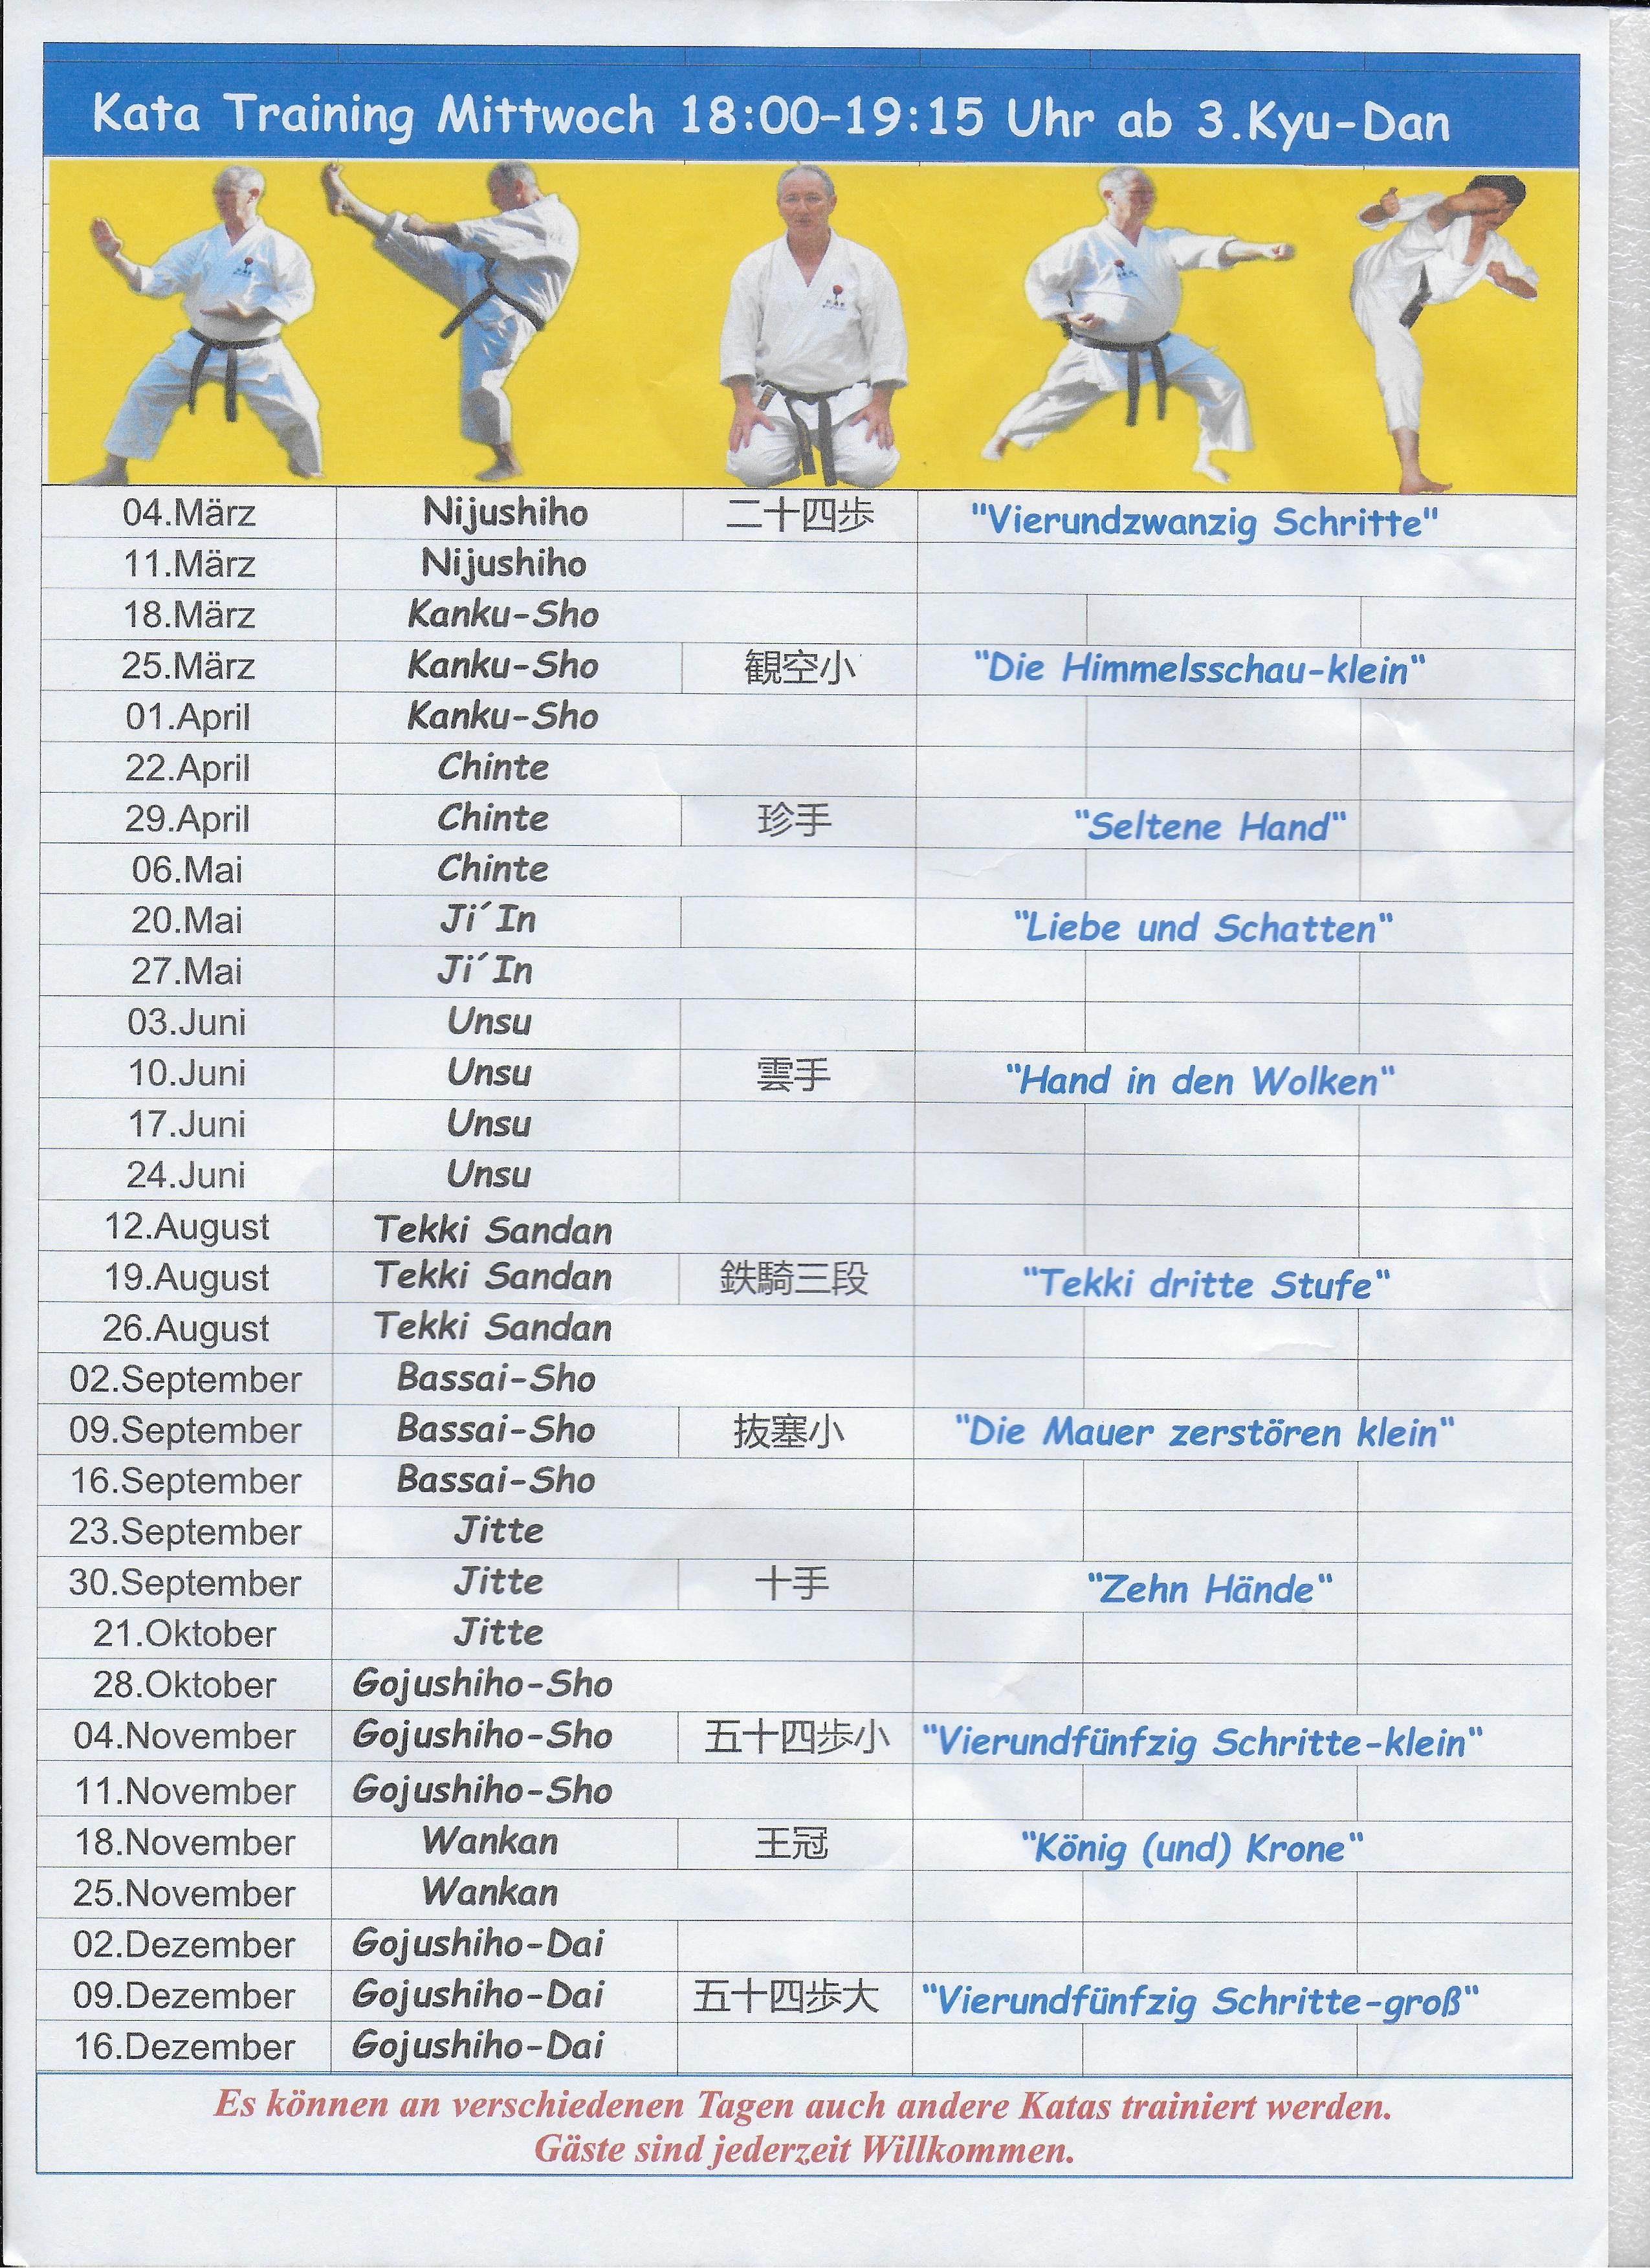 Kata Training Mittwoch 18:00-19:15 Uhr ab 3.Kyu-Dan
04.März Nijushiho 二十四歩 "Vierundzwanzig Schritte"
11.März Nijushiho
18.März Kanku-Sho
25.März Kanku-Sho 観空小 "Die Himmelsschau-klein"
01.April Kanku-Sho
22.April Chinte
29.April Chinte 珍手 "Seltene Hand"
06.Mai Chinte
20.Mai Ji´In "Liebe und Schatten"
27.Mai Ji´In
03.Juni Unsu
10.Juni Unsu 雲手 "Hand in den Wolken"
17.Juni Unsu
24.Juni Unsu
12.August Tekki Sandan
19.August Tekki Sandan 鉄騎三段 "Tekki dritte Stufe"
26.August Tekki Sandan
02.September Bassai-Sho
09.September Bassai-Sho 抜塞小 "Die Mauer zerstören klein"
16.September Bassai-Sho
23.September Jitte
30.September Jitte 十手 "Zehn Hände"
21.Oktober Jitte
28.Oktober Gojushiho-Sho
04.November Gojushiho-Sho 五十四歩小 "Vierundfünfzig Schritte-klein"
11.November Gojushiho-Sho
18.November Wankan 王冠 "König (und) Krone"
25.November Wankan
02.Dezember Gojushiho-Dai
09.Dezember Gojushiho-Dai 五十四歩大 "Vierundfünfzig Schritte-groß"
16.Dezember Gojushiho-Dai
Es können an verschiedenen Tagen auch andere Katas trainiert werden.
Gäste sind jederzeit Willkommen.